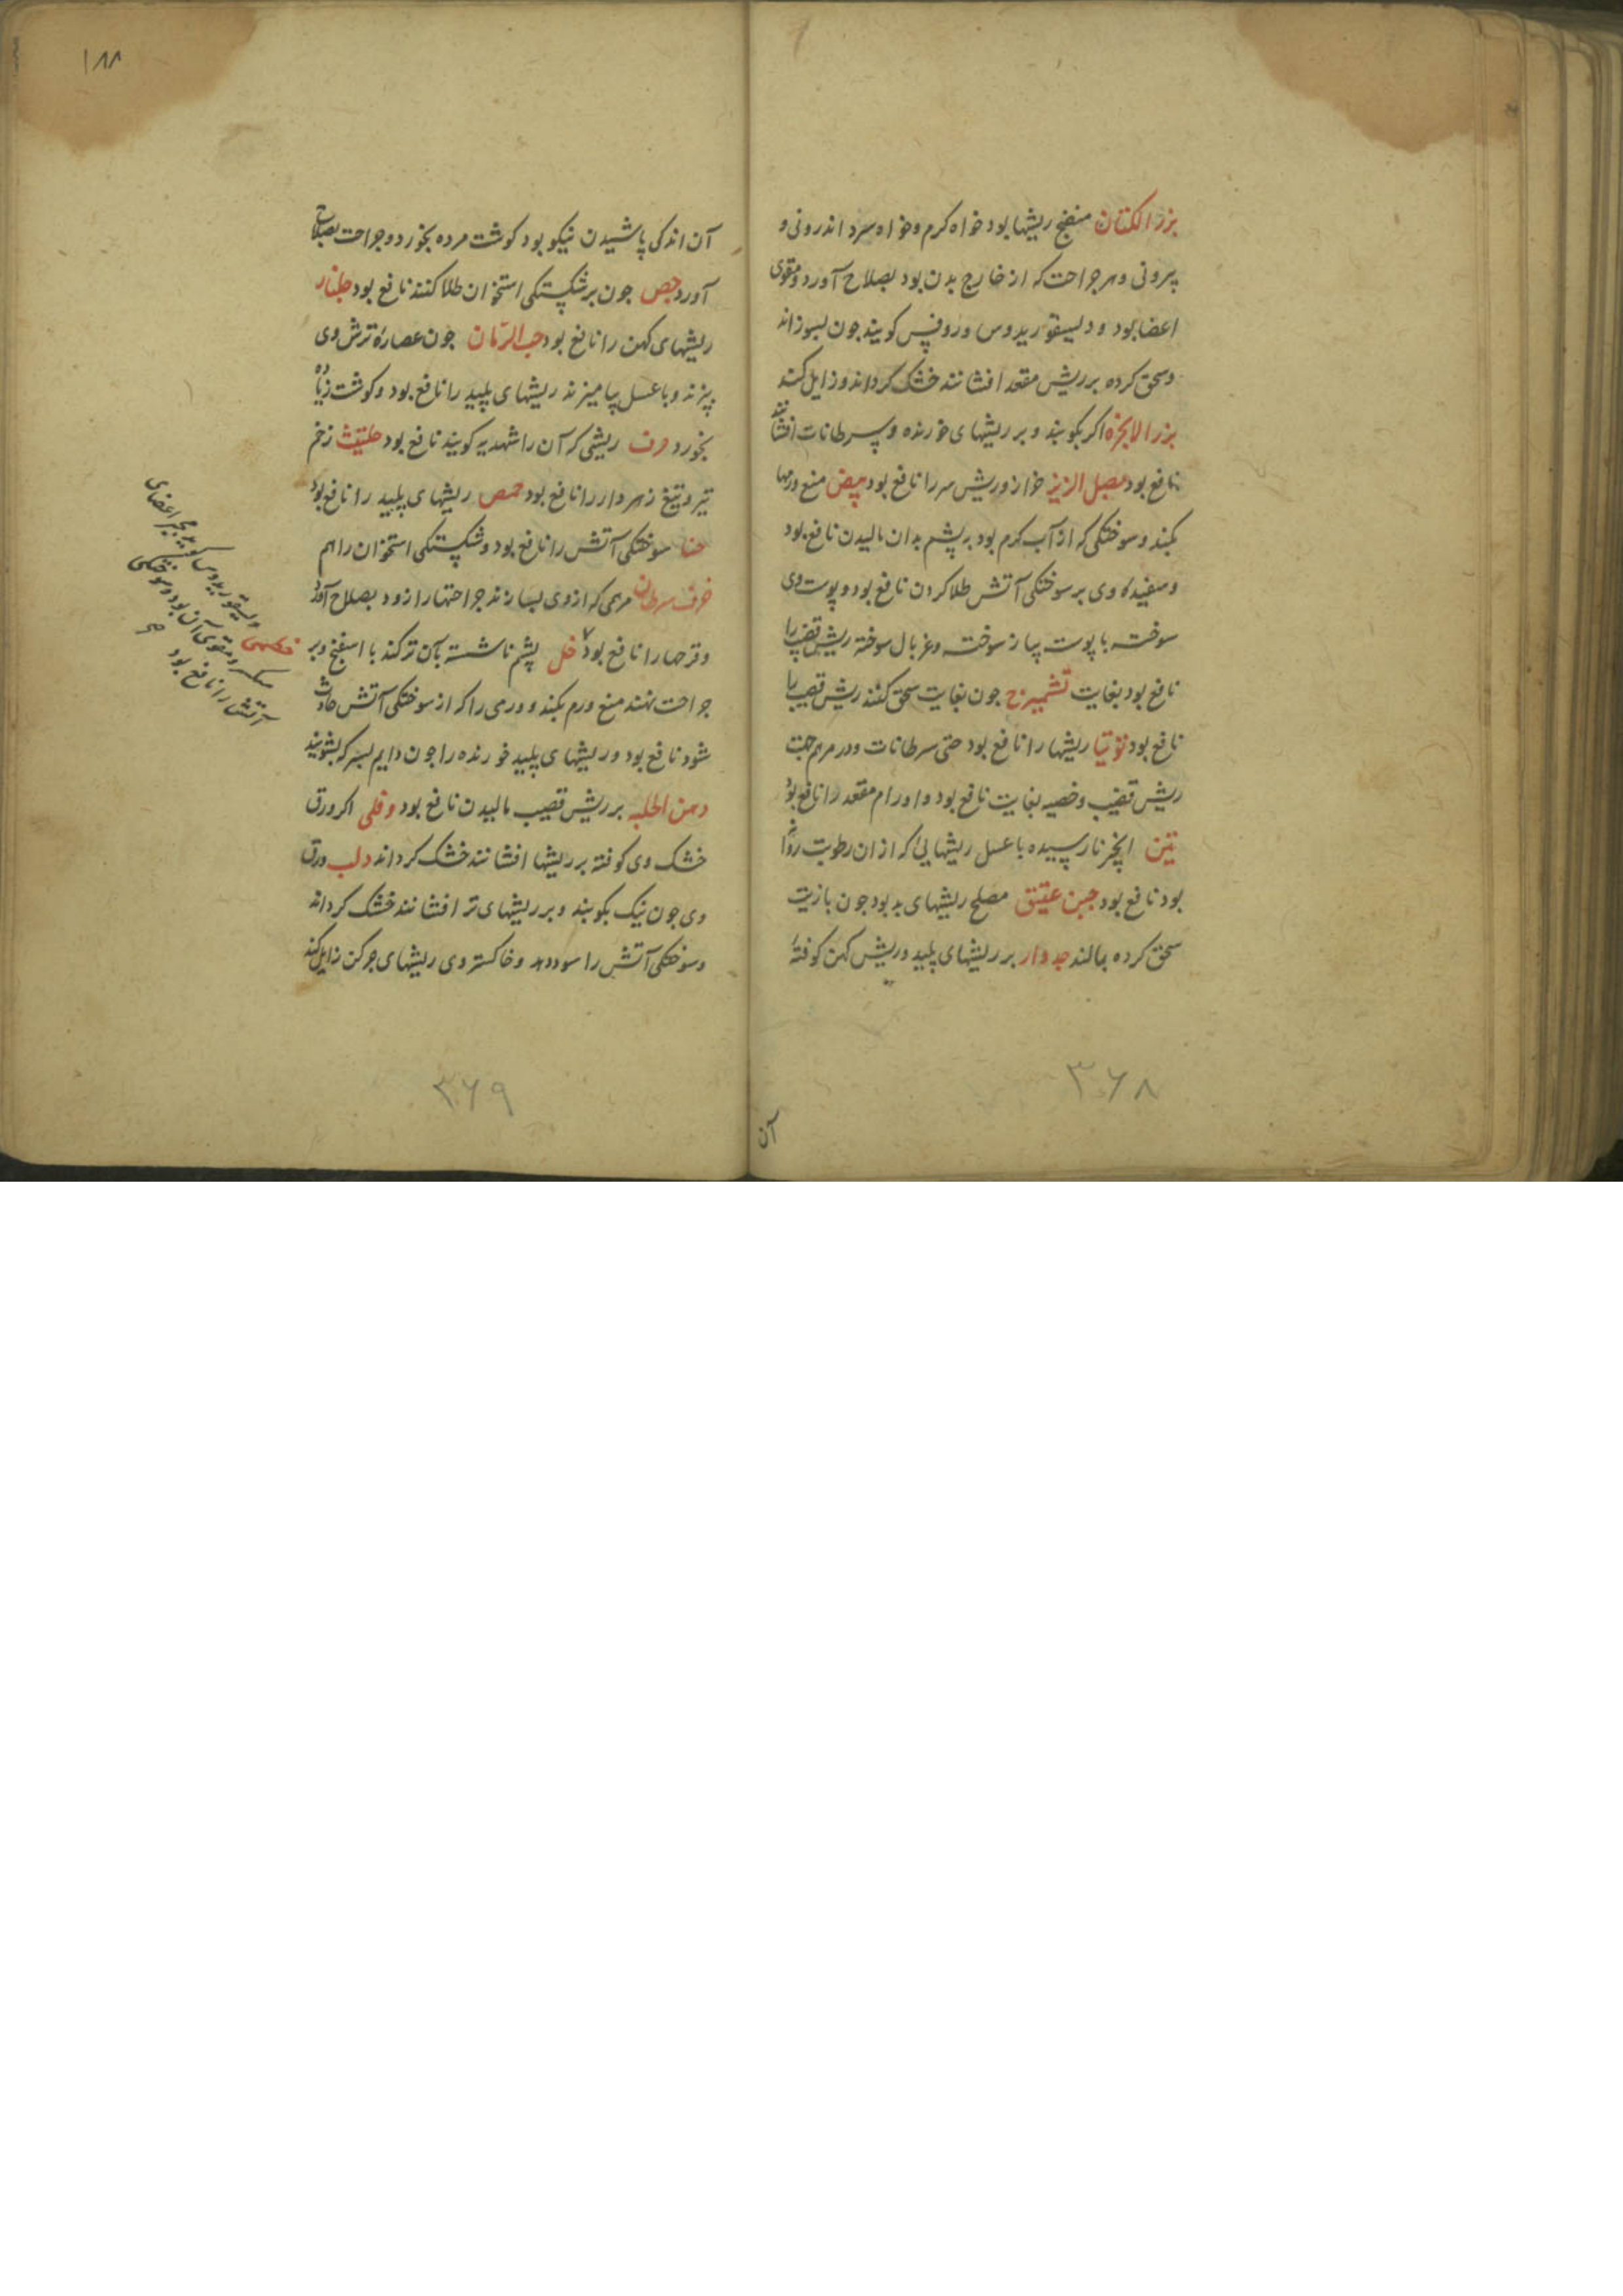 بزر الکتان منضج ریشها بود خواه کرم و خواه سرد اندرونی و
بیرونی و هر جراحت که از خارج بدن بود بصلاح آورد و مقوی
اعضا بود و دلیسقوریدوس و روفس کویند جون بسوزانند
و سحق کرده بر ریش مقعد افشانند خشک کرداند و زایل کند
بزر الانجره اکر بکوبند و بر ریشهای خورنده و سرطانات افشانند
نافع بود بصل الزیز خوازه و ریش سر را نافع بود بیض منع ورمها
بکند و سوختکی که از آب کرم بود به پشم بدان مالیدن نافع بود
و سفیده وی بر سوختکی آتش طلا کردن نافع بود و پوست وی
سوخته با پوست پیاز سوخته و غربال سوخته ریش قضیب را
نافع بود بغایت تشمیزج جون بغایت سحق کنند ریش قضیب را
نافع بود توتیا ریشها را نافع بود حتی سرطانات و در مرهم جهت
ریش قضیب و خصیه بغایت نافع بود و اورام مقعد را نافع بود
تین انجیر نارسیده با عسل ریشهایی که از ان رطوبت روان
بود نافع بود جبن عتیق مصلح ریشهای بد بود جون با زیت
سحق کرده بمالند جدوار بر ریشهای پلید و ریش کهن کوفته
۳۶۸
آن
۱۸۸
آن اندکی پاشیدن نیکو بود کوشت مرده بخورد و جراحت بصلاح
آورد جص جون بر شکستکی استخوان طلا کنند نافع بود جلنار
ریشهای کهن را نافع بود حب الرمان جون عصاره ترش وی
بپزند و با عسل بیامیزند ریشهای پلید را نافع بود و کوشت زیاده
بخورد حرف ریشی که آن را شهدیه کویند نافع بود حلتیت زخم
تیر و تیغ زهردار را نافع بود حمص ریشهای پلید را نافع بود
حنا سوختکی آتش را نافع بود و شکستکی استخوان را هم
خزف سرطان مرهمی که از وی بسازند جراحتها را زود بصلاح آورد
و قرحها را نافع بود خل پشم ناشسته بآن تر کنند با اسفنج و بر
جراحت نهند منع ورم بکند و ورمی را که از سوختکی آتش حادث
شود نافع بود و ریشهای پلید خورنده را جون دایم بسرکه بشویند
دهن الحلبه بر ریش قضیب مالیدن نافع بود دفلی اکر ورق
خشک وی کوفته بر ریشها افشانند خشک کرداند دلب ورق
وی جون نیک بکوبند و بر ریشهای تر افشانند خشک کرداند
و سوختکی آتش را سود دهد و خاکستر وی ریشهای چرکن زایل کند
دلیسقوریدوس کوید اعضای
و مقوی آن بود و سوختکی
آتش را نافع بود
۳۶۹